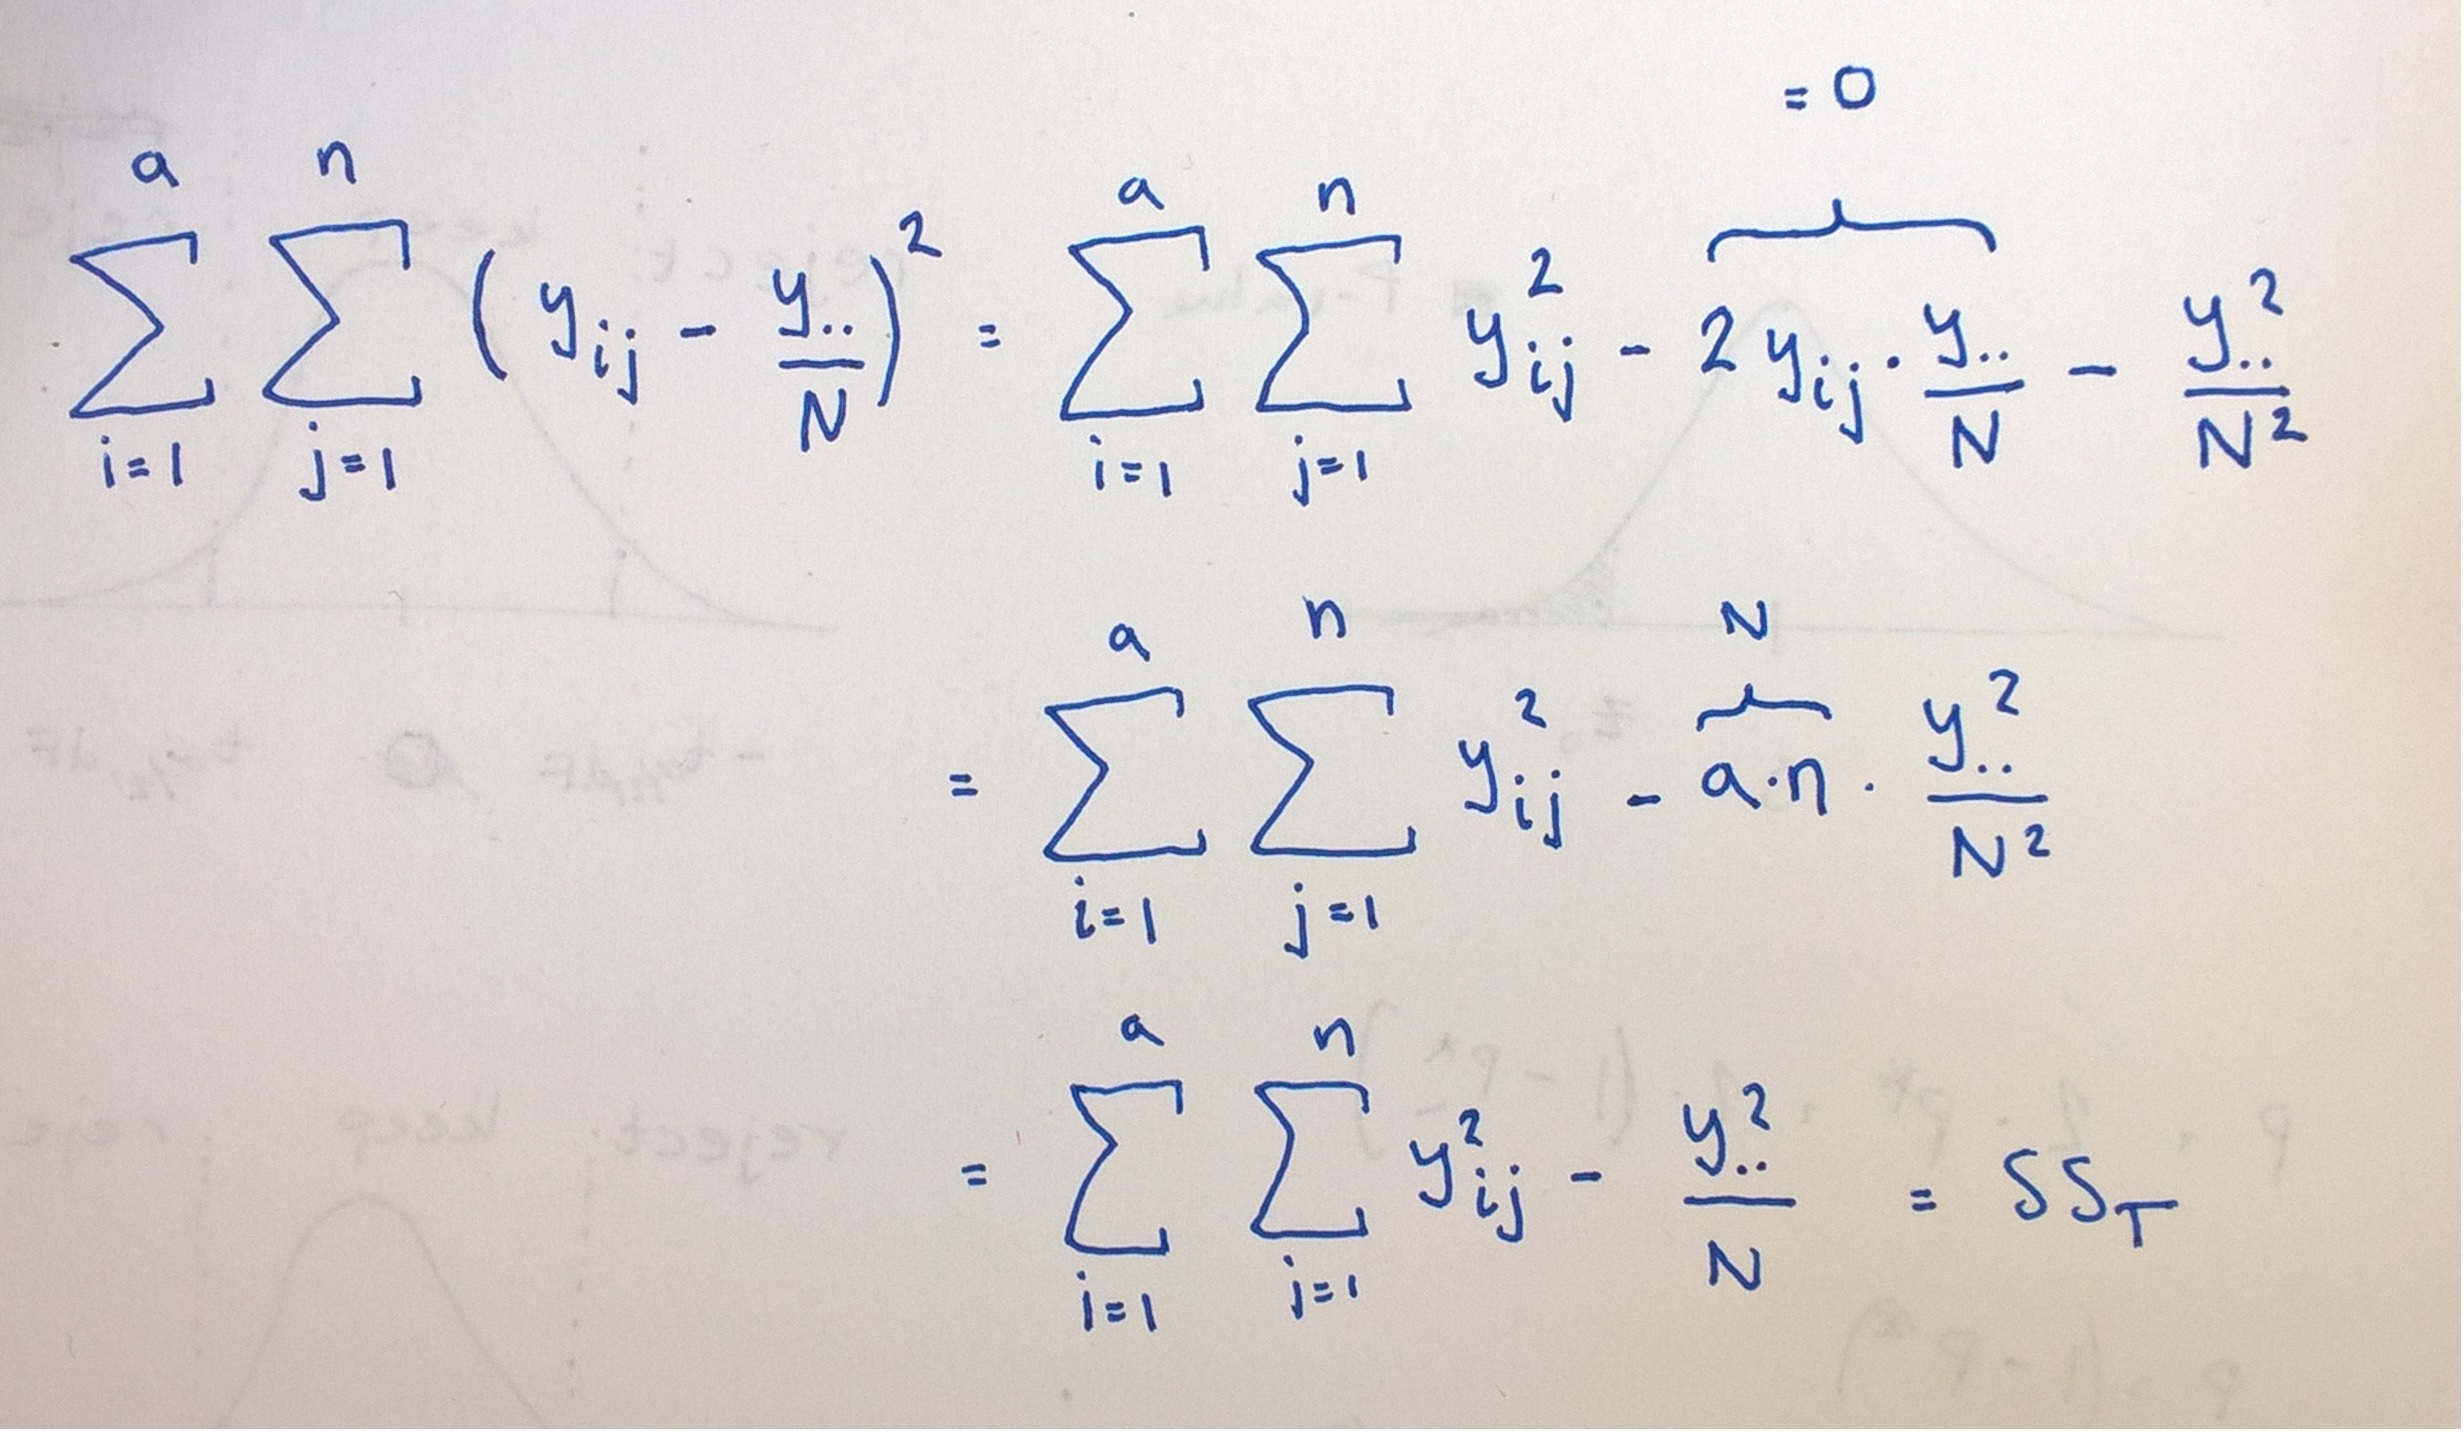 = 0
∑_{i=1}^{a} ∑_{j=1}^{n} (y_{ij} - y_{..}/N)^2 = ∑_{i=1}^{a} ∑_{j=1}^{n} y_{ij}^2 - 2 y_{ij} · y_{..}/N - y_{..}^2/N^2
N
= ∑_{i=1}^{a} ∑_{j=1}^{n} y_{ij}^2 - a·n · y_{..}^2/N^2
= ∑_{i=1}^{a} ∑_{j=1}^{n} y_{ij}^2 - y_{..}^2/N = SS_T